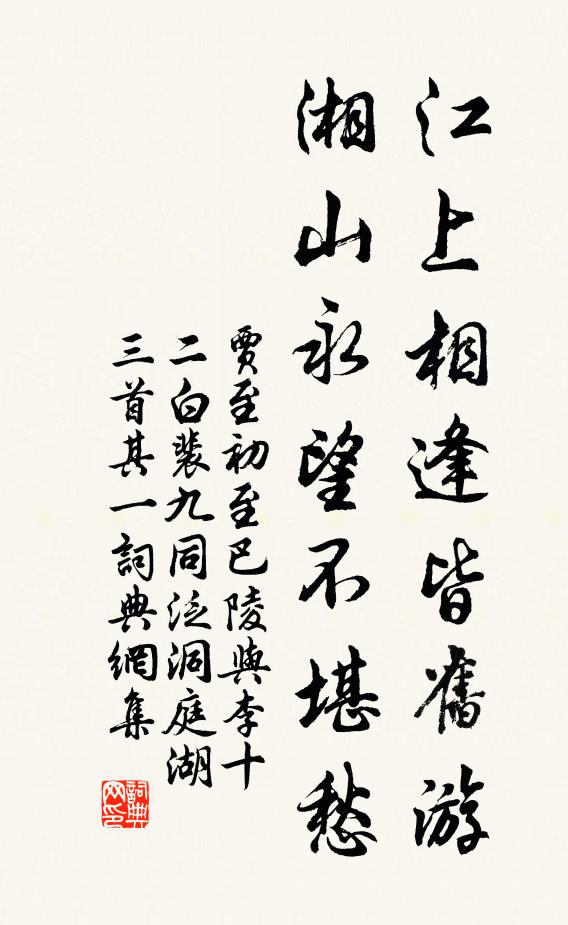 江上相逢皆舊游
湘山永望不堪愁
賈至初至巴陵與李十
二白裴九同泛洞庭湖
三首其一詞典網集
詞典网印